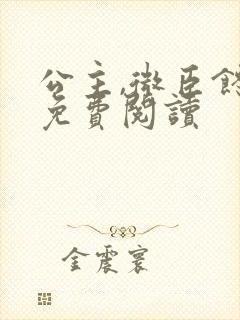 公主,微臣餓
免費閱讀
金震寰